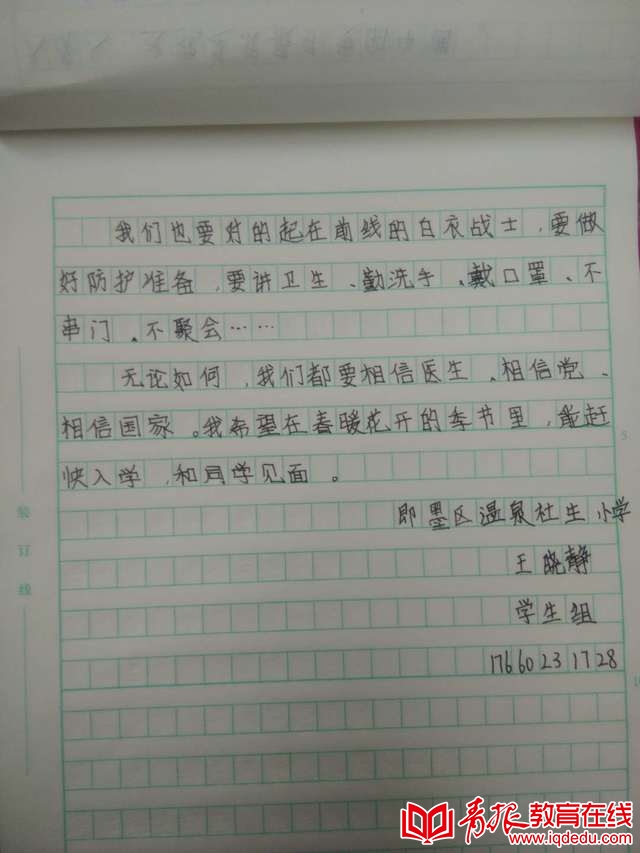 我们也要对的起在前线的白衣战士，要做
好防护准备，要讲卫生、勤洗手、戴口罩、不
串门、不聚会……
无论如何，我们都要相信医生、相信党、
相信国家。我希望在春暖花开的季节里，能赶
快入学，和同学见面。
即墨区温泉社生小学
王晓静
学生组
17660231728
装订线
5
10
青报教育在线
www.iqdedu.com